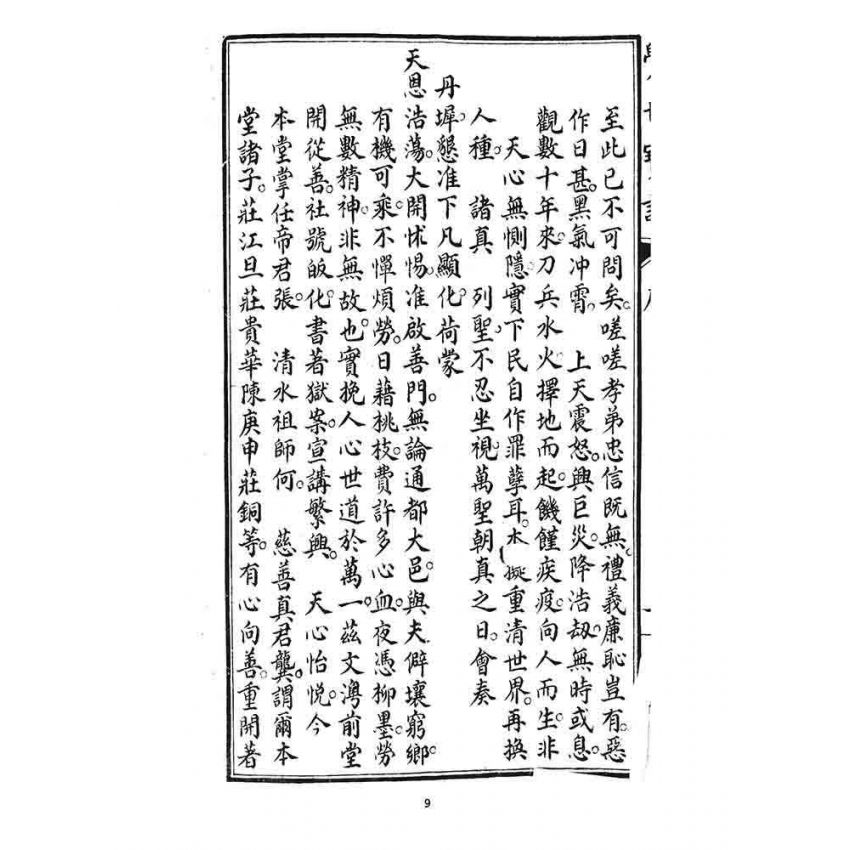 至此已不可問矣。嗟嗟孝弟忠信既無。禮義廉恥豈有。惡
作日甚。黑氣冲霄。上天震怒。興巨災。降浩劫。無時或息。
觀數十年來。刀兵水火。擇地而起。饑饉疾疫。向人而生。非
天心無惻隱。實下民自作罪孽耳。本擬重清世界。再換
人種。諸真 列聖。不忍坐視。萬聖朝真之日。會奏
丹墀。懇准下凡顯化。荷蒙
天恩浩蕩。大開怵惕。准啟善門。無論通都大邑。與夫僻壤窮鄉。
有機可乘。不憚煩勞。日藉桃枝。費許多心血。夜憑柳墨。勞
無數精神。非無故也。實挽人心世道於萬一。茲文澚前堂
開從善。社號皈化。書著獄案。宣講繁興。 天心怡悅。今
本堂掌任帝君張。 清水祖師何。 慈善真君龔。謂爾本
堂諸子。莊江旦莊貴華陳庚申莊銅等。有心向善。重開著
9